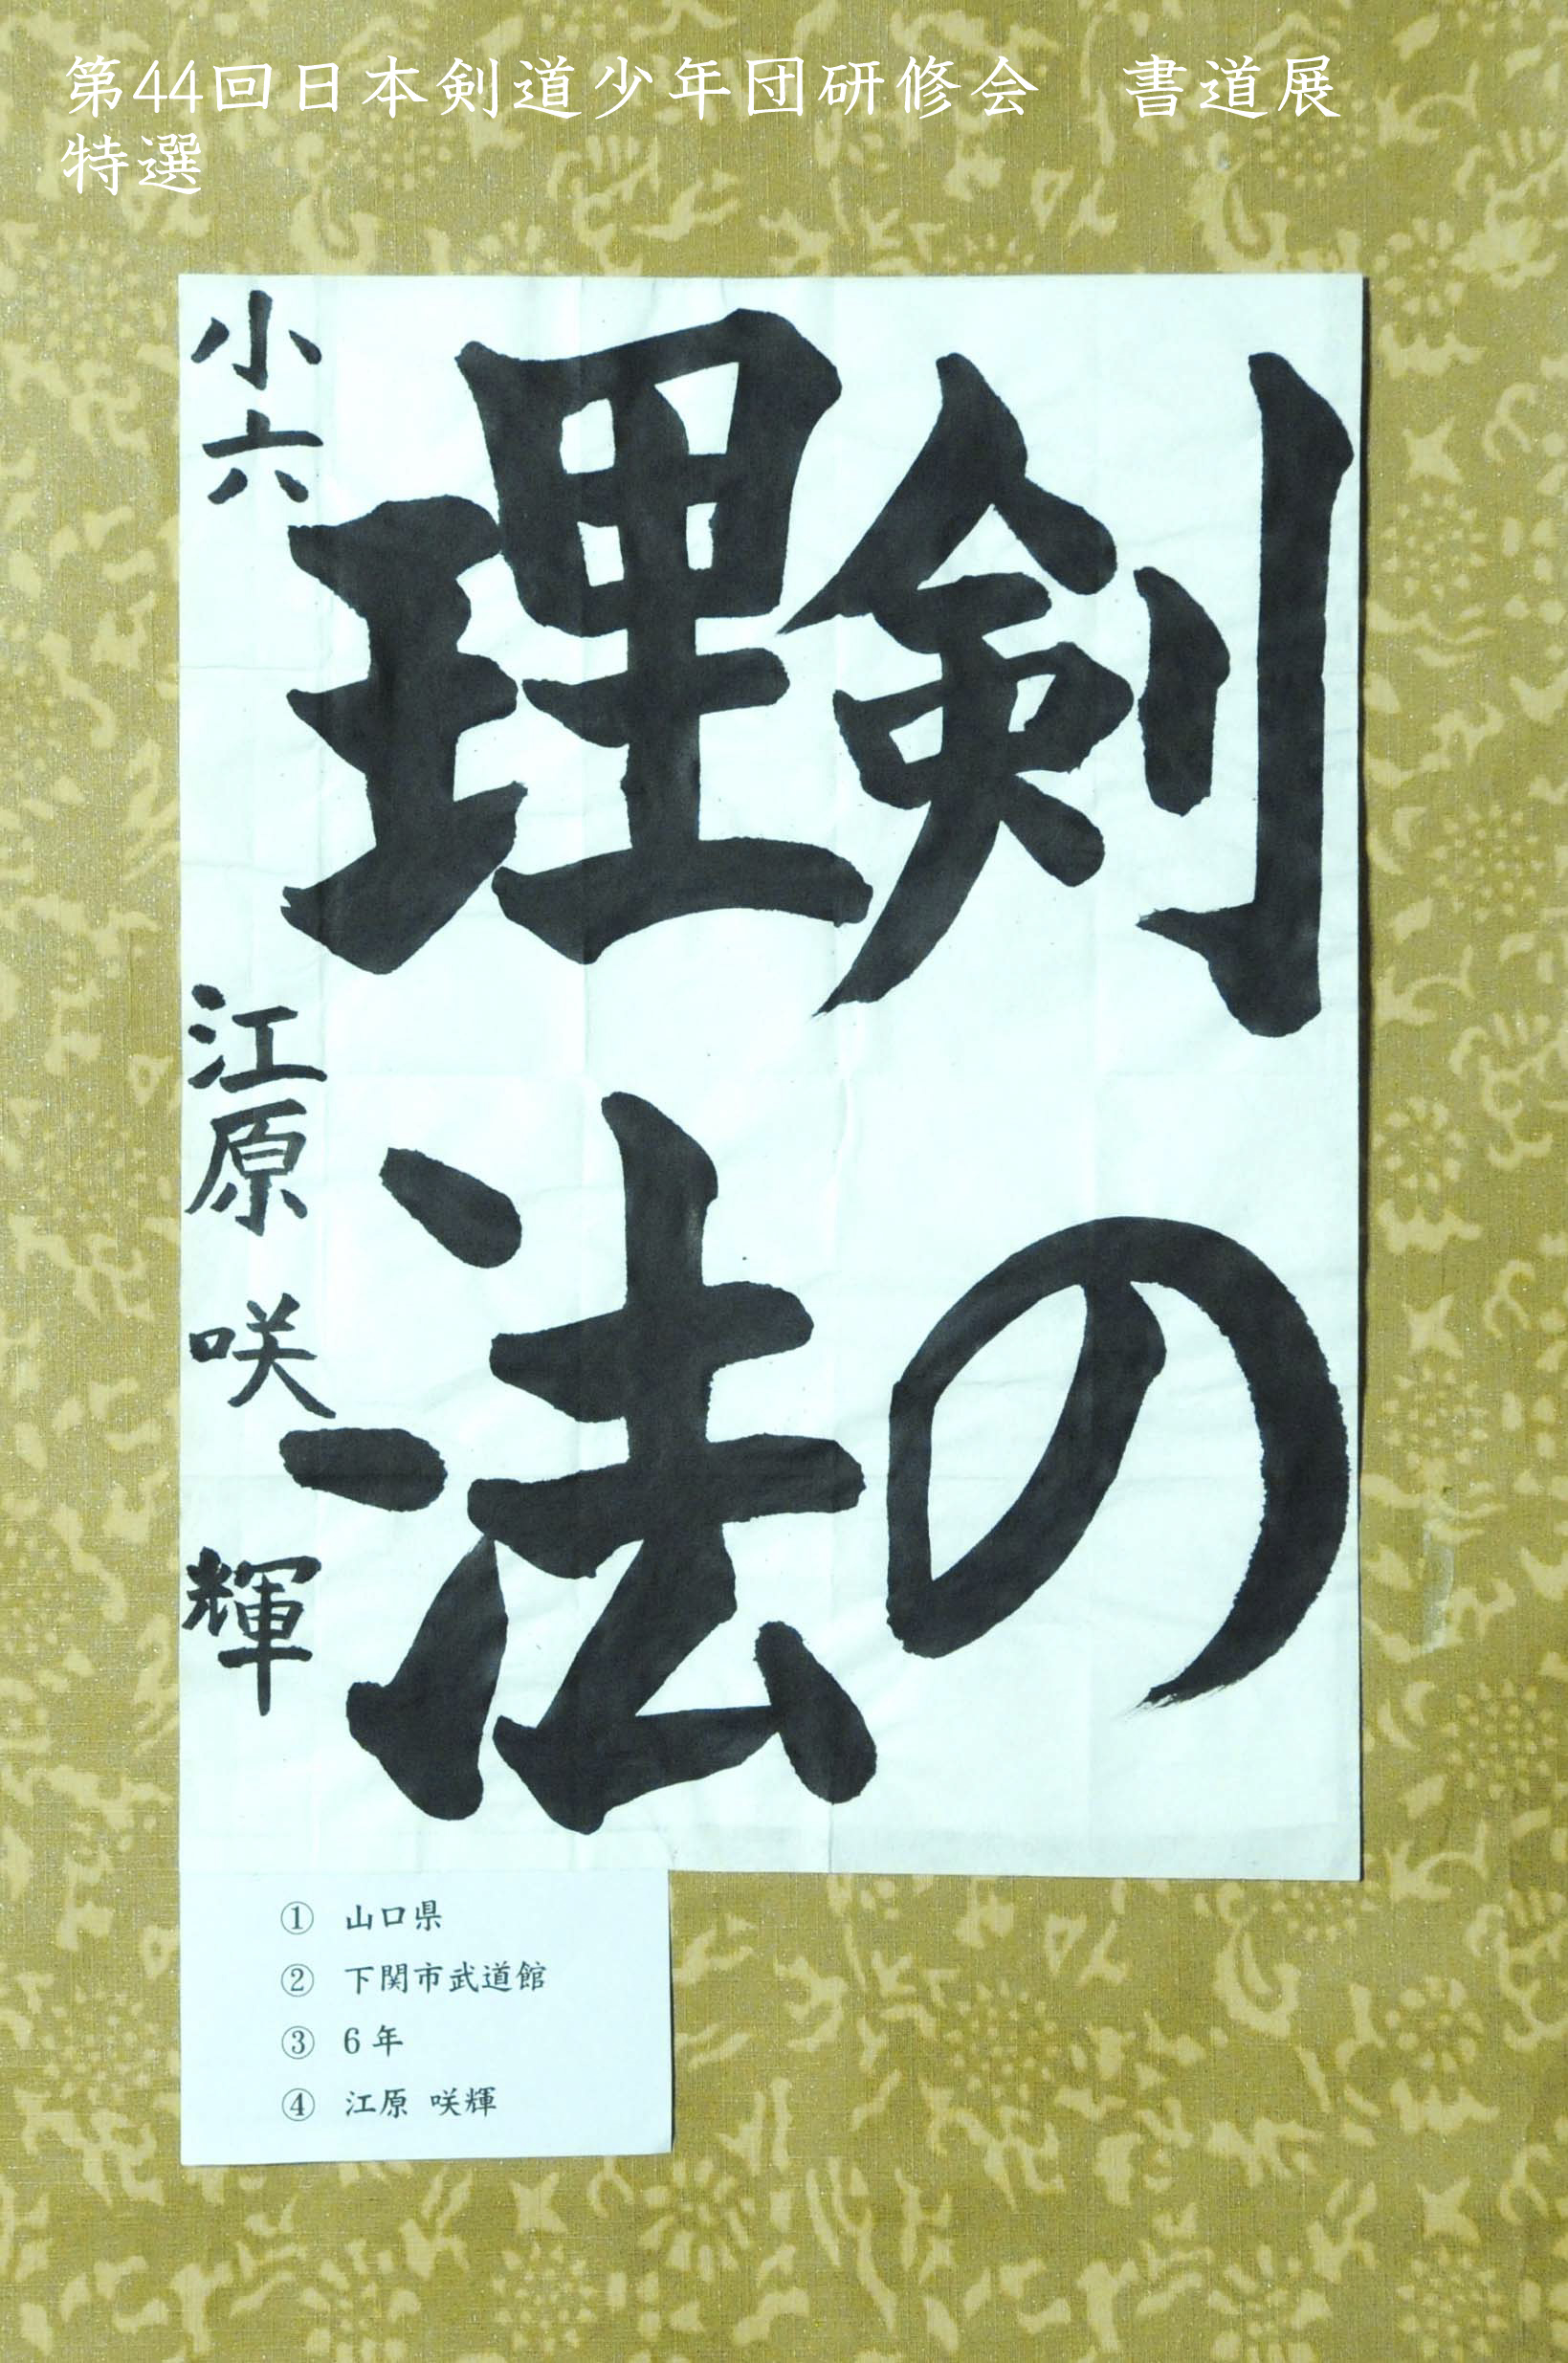 第44回日本剣道少年団研修会　書道展
特選
剣の
理法
小六 江原 咲輝
① 山口県
② 下関市武道館
③ 6年
④ 江原 咲輝